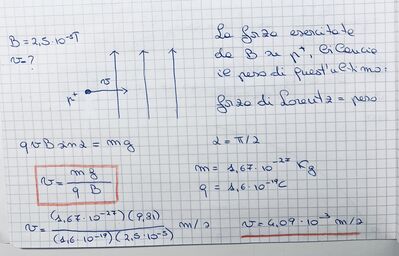 B = 2,5·10⁻⁵T
v = ?
v
p⁺
La forza esercitata
da B su p⁺, bilancia
il peso di quest'ultimo:
forza di Lorentz = peso
q v B sin α = mg
α = π/2
v = mg / q B
m = 1,67·10⁻²⁷ Kg
q = 1,6·10⁻¹⁹C
v = (1,67·10⁻²⁷)(9,81) / (1,6·10⁻¹⁹)(2,5·10⁻⁵) m/s
v = 4,09·10⁻³ m/s